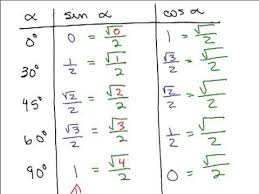 α sin α cos α
0° 0 = √0/2 1 = √/2
30° 1/2 = √1/2 √3/2 = √/2
45° √2/2 = √2/2 √2/2 = √/2
60° √3/2 = √3/2 1/2 = √/2
90° 1 = √4/2 0 = √/2